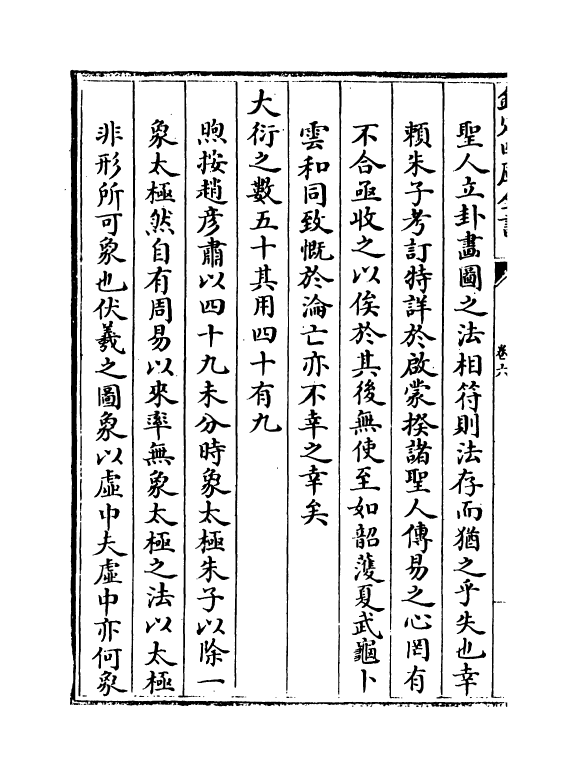 欽定四庫全書
卷六
聖人立卦畫圖之法相符則法存而猶之乎失也幸
賴朱子考訂特詳於啟蒙揆諸聖人傳易之心罔有
不合亟收之以俟於其後無使至如韶濩夏武龜卜
雲和同致慨於淪亡亦不幸之幸矣
大衍之數五十其用四十有九
煦按趙彥肅以四十九未分時象太極朱子以除一
象太極然自有周易以來率無象太極之法以太極
非形所可象也伏羲之圖象以虛中夫虛中亦何象